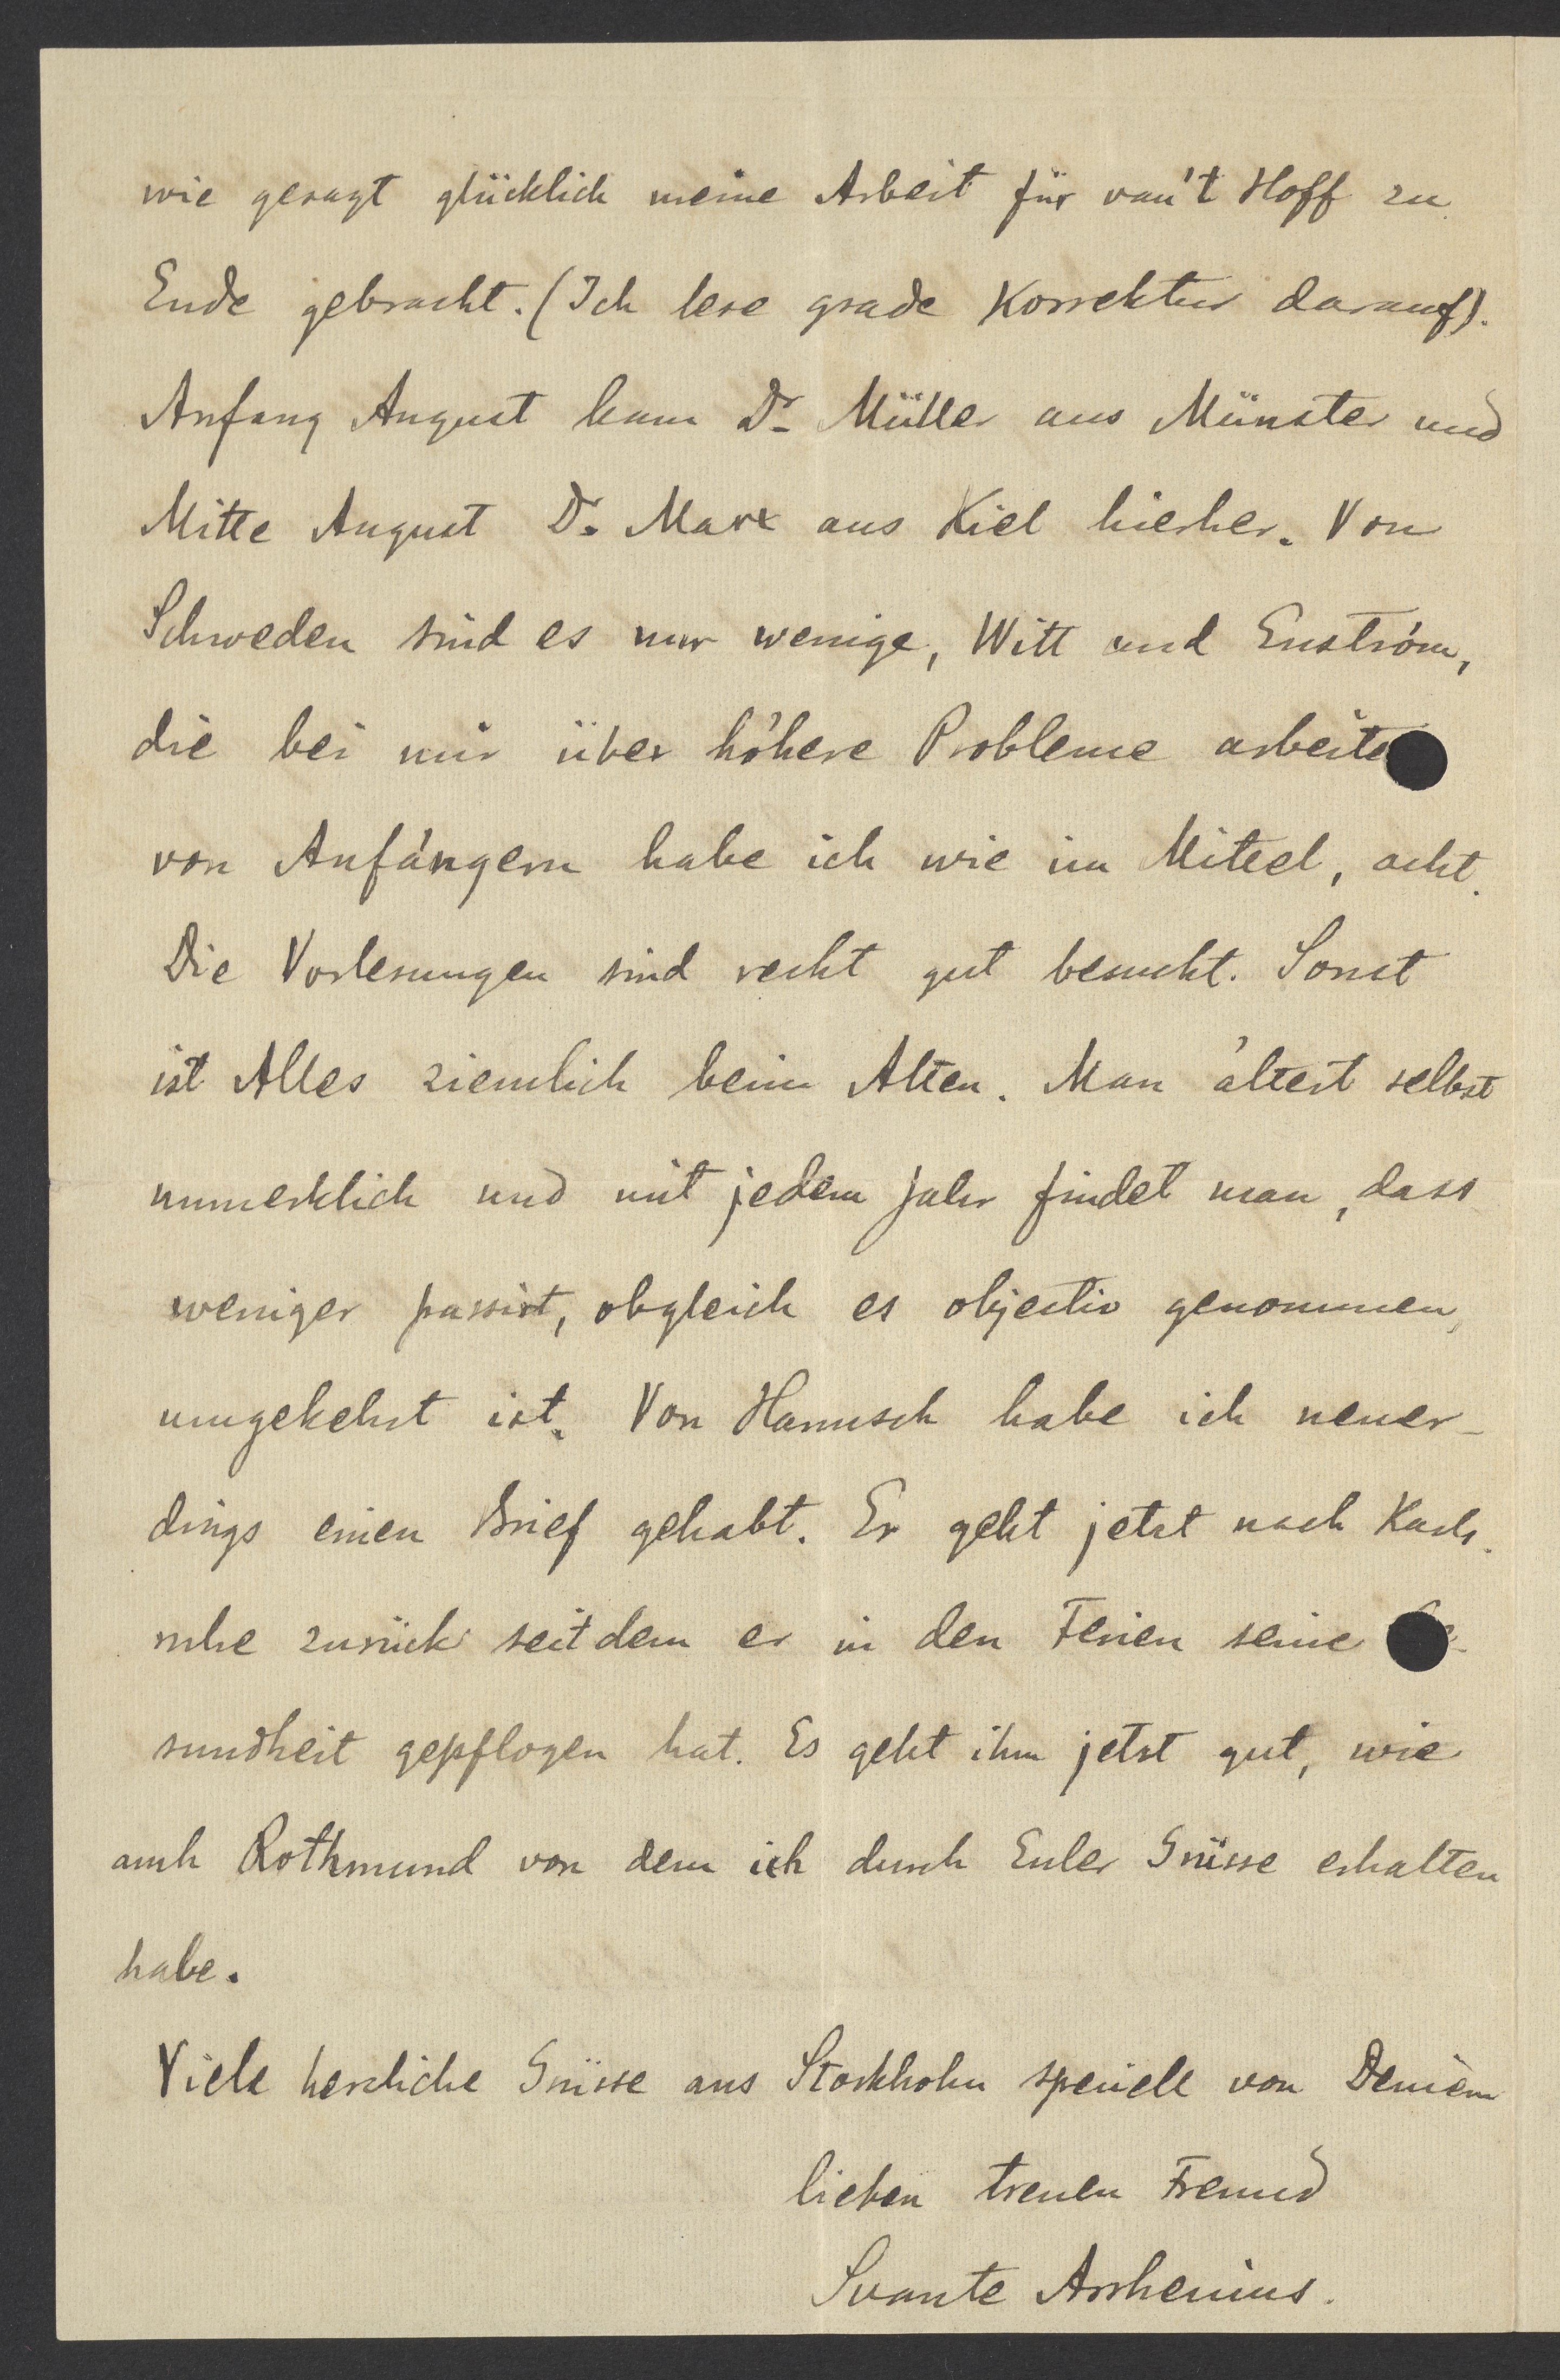 wie gesagt glücklich meine Arbeit für van't Hoff zu
Ende gebracht. (Ich lese grade Korrektur darauf).
Anfang August kam Dr Müller aus Münster und
Mitte August Dr. Marx aus Kiel hierher. Von
Schweden sind es nur wenige, Witt und Enström,
die bei mir über höhere Probleme arbeite
von Anfängern habe ich wie im Mittel, acht.
Die Vorlesungen sind recht gut besucht. Sonst
ist Alles ziemlich beim Alten. Man ältert selbst
unmerklich und mit jedem Jahr findet man, dass
weniger passirt, obgleich es objectiv genommen,
umgekehrt ist. Von Hannsch habe ich neuer-
dings einen Brief gehabt. Er geht jetzt nach Karls-
ruhe zurück seitdem er in den Ferien seine
sundheit gepflogen hat. Es geht ihm jetzt gut, wie
auch Rothmund von dem ich durch Euler Grüsse erhalten
habe.
Viele herzliche Grüsse aus Stockholm speciell von Deinem
lieben treuen Freund
Svante Arrhenius.